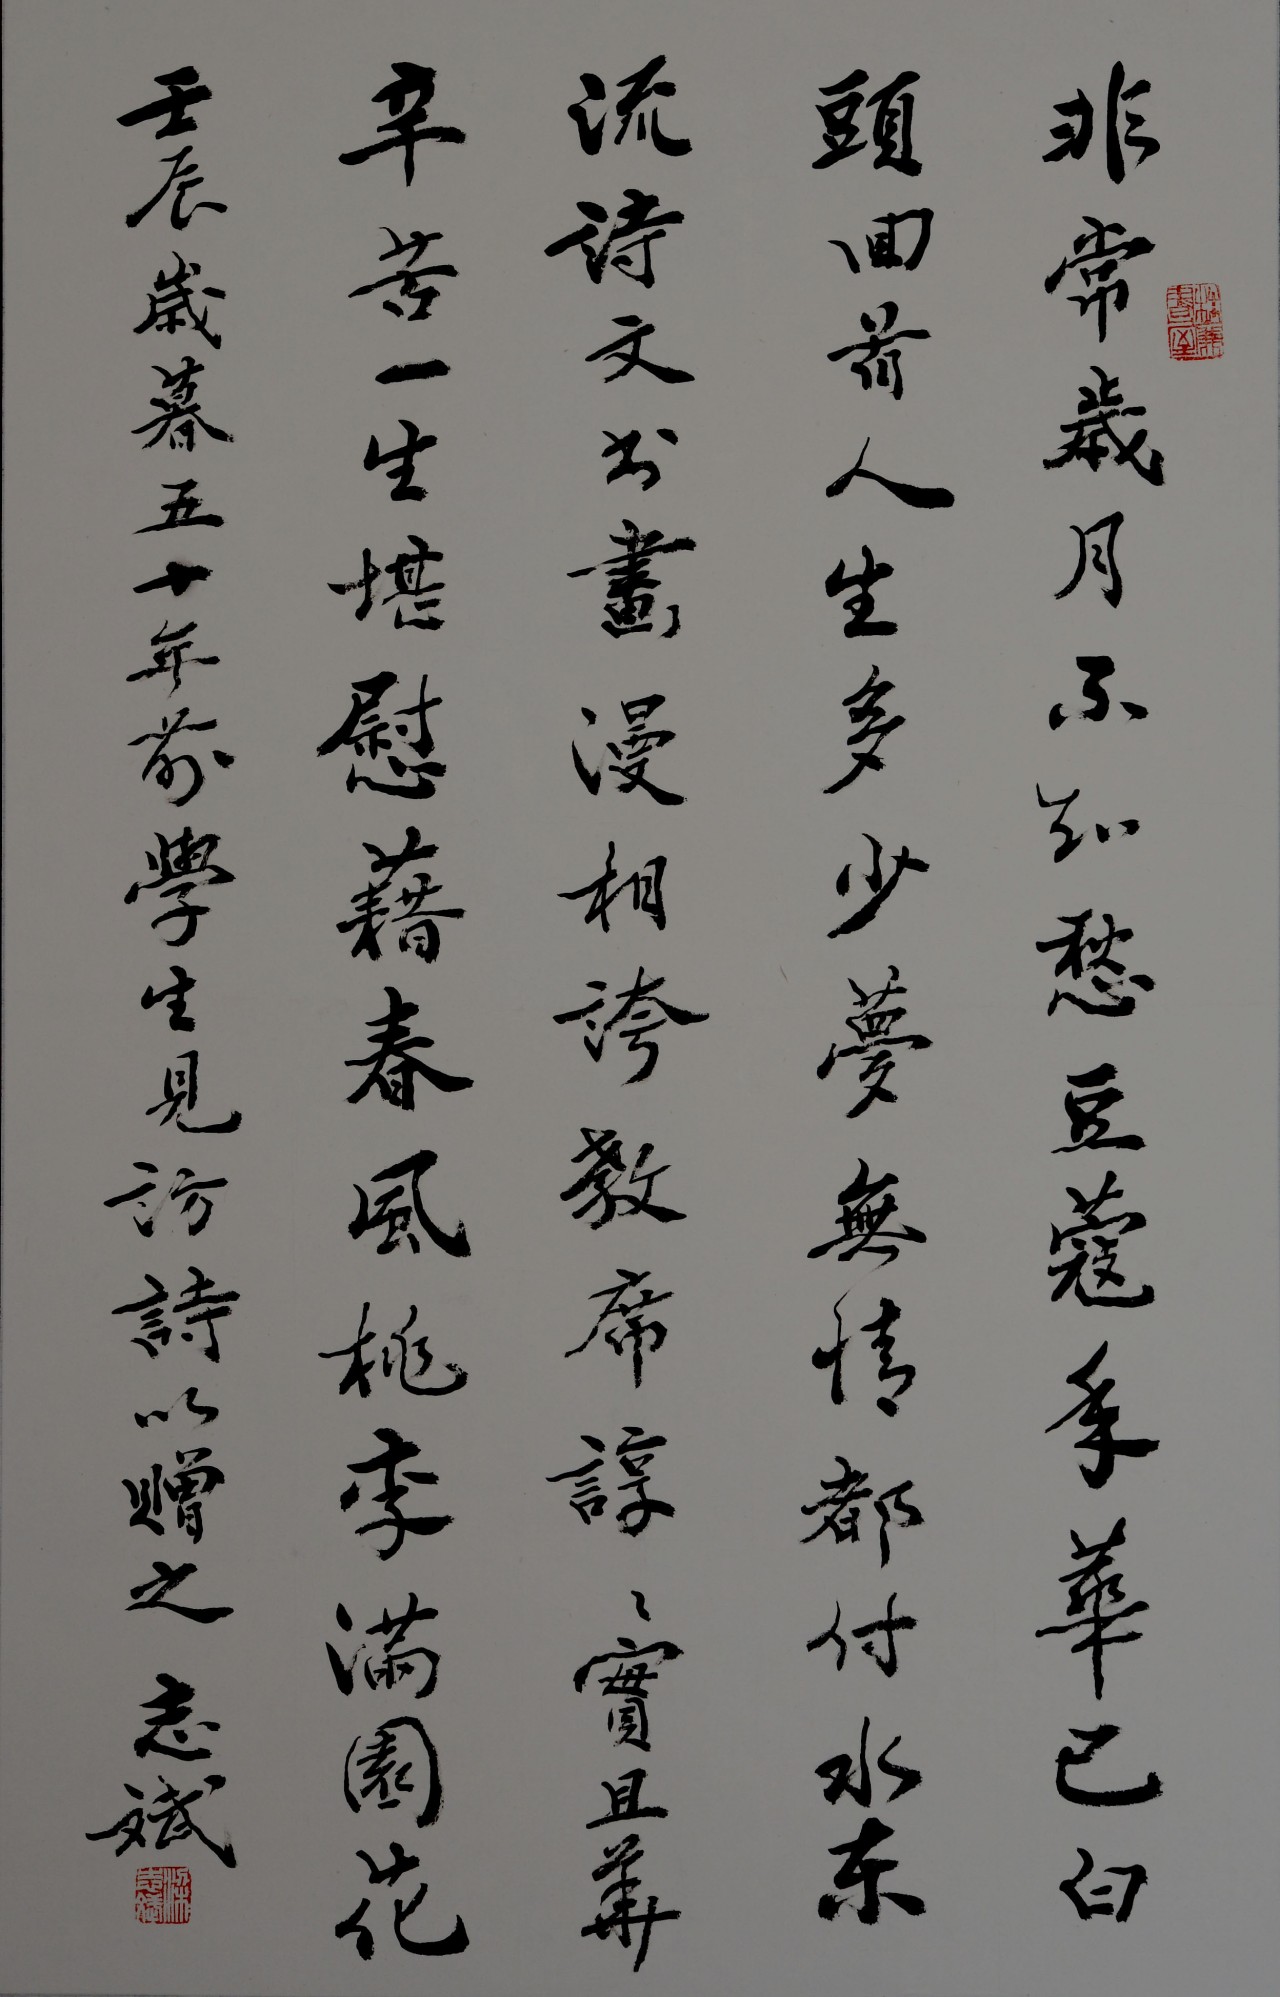 非常歲月不知愁豆蔻年華已白
頭回首人生多少夢無情都付水东
流詩文书畫漫相誇教席諄々實且華
辛苦一生堪慰藉春風桃李滿園花
壬辰歲暮五十年前學生見訪詩以贈之 志斌